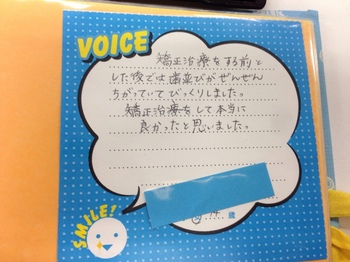 VOICE
矯正治療をする前と
した後では歯並びがぜんぜん
ちがっていてびっくりしました。
矯正治療をして本当に
良かったと思いました。
歳
SMILE!